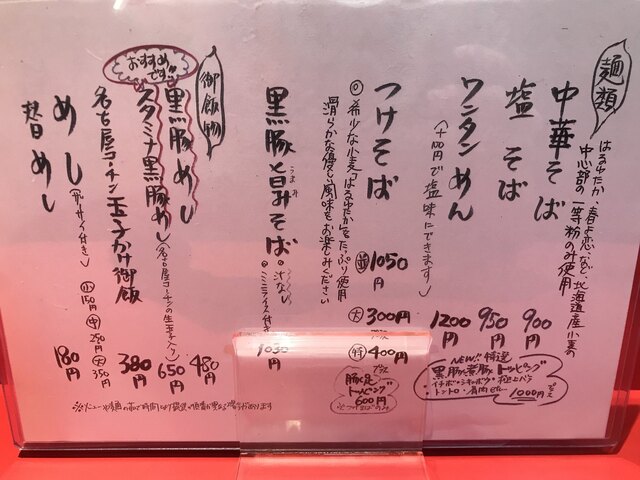 麺類
はるゆたか、春よ恋、など、北海道産小麦の
中心部の一等粉のみ使用
中華そば 900円
塩そば 950円
ワンタンめん 1200円
(+100円で塩味にできます)
NEW!! 特選
黒豚煮豚トッピング
トントロ・
プラス1000円
つけそば 並1050円
大 プラス300円
特 プラス400円
◎希少な小麦「はるゆたか」をたっぷり使用
滑らかな優しい風味をお楽しみください
豚足トッピング
プラス600円
※つけそばのみ
黒豚旨みそば。汁なし ミニライス付き
1030円
御飯物
おすすめです!!
黒豚めし 480円
スタミナ黒豚めし(名古屋コーチンの生玉子入り) 650円
名古屋コーチン玉子かけ御飯 380円
めし(ザーサイ付き) 小150円 中250円 大350円
替めし 180円